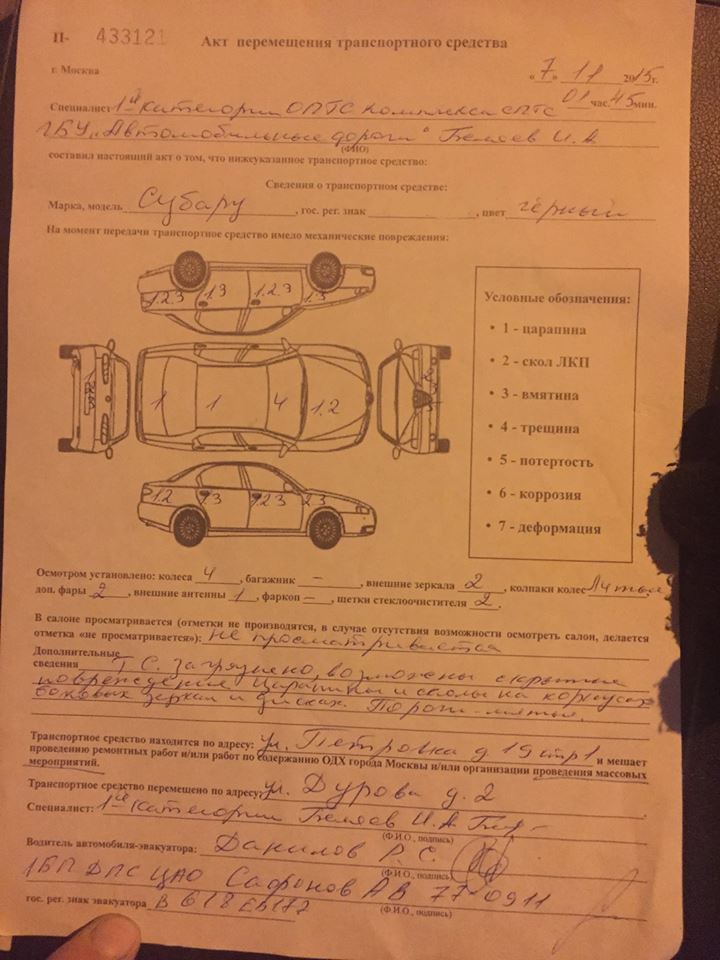 П- 433121
Акт перемещения транспортного средства
г. Москва
«7» 11 2015г.
01 час. 45 мин.
Специалист 1ой категории ОПТС Комплекса СПТС
ГБУ "Автомобильные дороги" Беляев И.А
(ФИО)
составил настоящий акт о том, что нижеуказанное транспортное средство:
Сведения о транспортном средстве:
Марка, модель Субару, гос. рег. знак , цвет чёрный
На момент передачи транспортное средство имело механические повреждения:
1.2.3 1.3 1.2.3 1.3
1 1 4 1.2
1.2 1.3 1.2.3 1.2.3
Условные обозначения:
• 1 - царапина
• 2 - скол ЛКП
• 3 - вмятина
• 4 - трещина
• 5 - потертость
• 6 - коррозия
• 7 - деформация
Осмотром установлено: колеса 4, багажник –, внешние зеркала 2, колпаки колес Литые,
доп. фары 2, внешние антенны 1, фаркоп –, щетки стеклоочистителя 2.
В салоне просматривается (отметки не производятся, в случае отсутствия возможности осмотреть салон, делается
отметка «не просматривается»): не просматривается
Дополнительные
сведения Т.С. загрязнено, возможны скрытые
повреждения Царапины и сколы на корпусах
боковых зеркал и дисках. Пороги-мятые.
Транспортное средство находится по адресу: ул. Петровка д 19 стр 1 и мешает
проведению ремонтных работ и/или работ по содержанию ОДХ города Москвы и/или организации проведения массовых
мероприятий.
Транспортное средство перемещено по адресу: ул. Дурова д. 2
Специалист: 1ой категории Беляев И.А
(Ф.И.О., подпись)
Водитель автомобиля-эвакуатора: Данилов Р С
(Ф.И.О., подпись)
1БП ДПС ЦАО Сафонов АВ 77-0911
гос. рег. знак эвакуатора
(Ф.И.О., подпись)